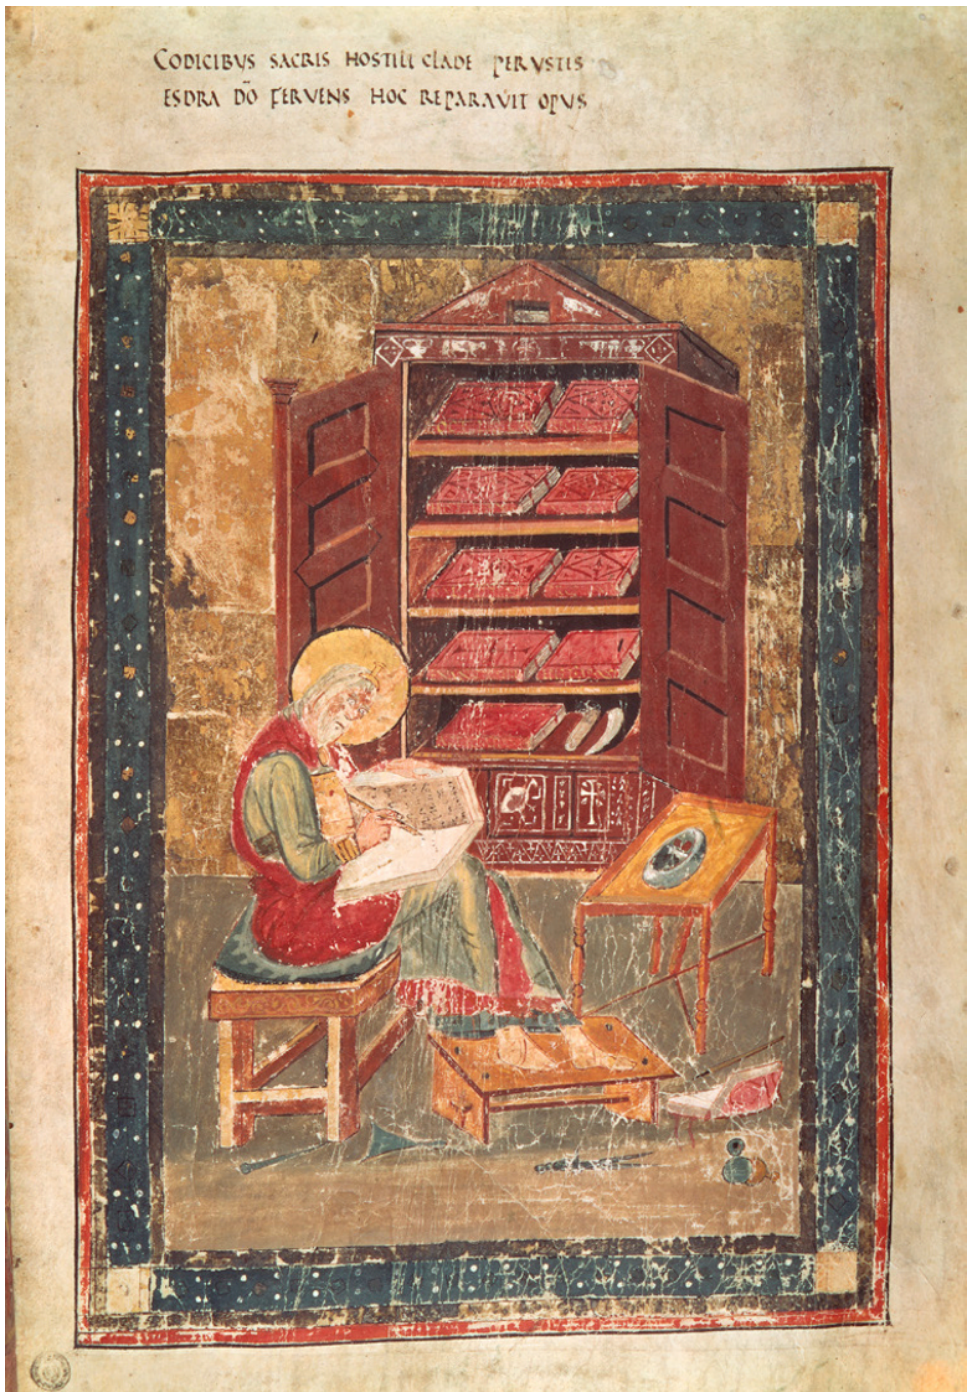 CODICIBVS SACRIS HOSTILI CLADE PERVSTIS
ESDRA DŌ FERVENS HOC REPARAVIT OPVS